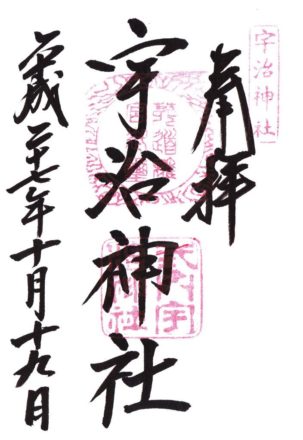 宇治神社
奉拝
宇治神社
平成二十七年十月十九日